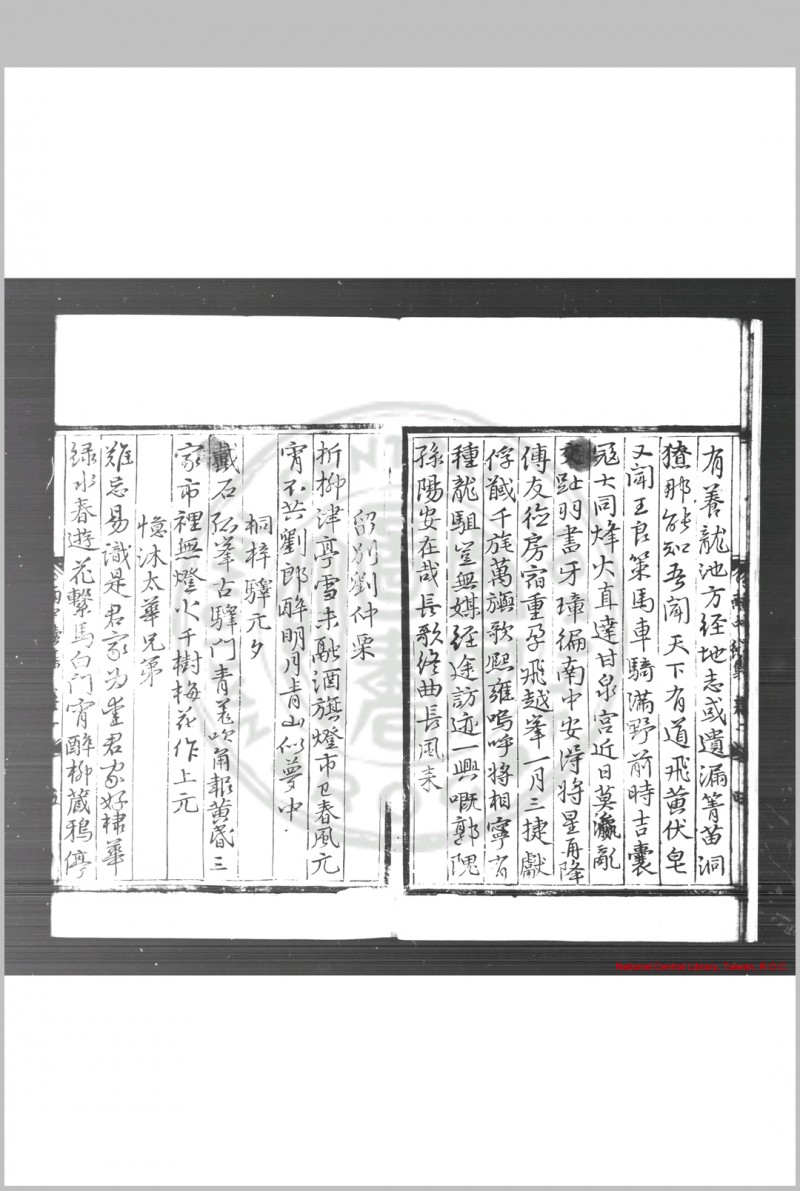 有養龍池方經地志或遺漏箐苗洞
獠那能知吾聞天下有道飛黃伏皂
又聞王良策馬車騎滿野前時吉囊
寇大同烽火直達甘泉宮近日莫瀛亂
交趾羽書牙璋徧南中安得將星再降
傅友德房宿重孕飛越峯一月三捷獻
俘馘千旄萬旟歌熙雍嗚呼將相寧有
種龍駔豈無媒經途訪迹一興嘅郭隗
孫陽安在哉長歌終曲長風來
留別劉仲栗
折柳津亭雪未融酒旗燈市已春風元
宵不共劉郎醉明月青山似夢中
桐梓驛元夕
戴石孤峯古驛門青羌吹角報黃昏三
家市裡無燈火千樹梅花作上元
憶沐太華兄弟
難忘易識是君家為愛君家好棣華
綠水春遊花繫馬白門宵醉柳藏鴉亭